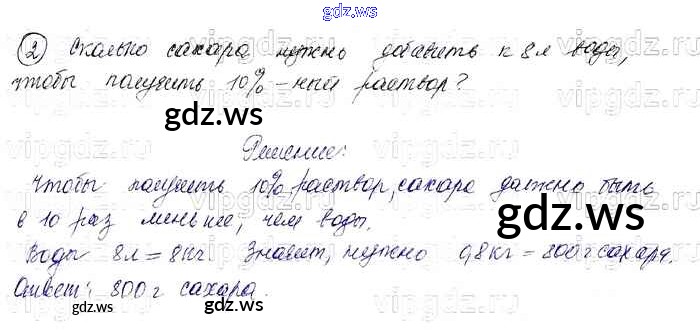 gdz.ws
② Сколько сахара нужно добавить к 8л воды,
чтобы получить 10%-ный раствор?
gdz.ws gdz.ws
Решение:
Чтобы получить 10% раствор, сахара должно быть
в 10 раз меньше, чем воды.
Воды 8л = 8кг. Значит, нужно 0,8кг = 800г сахара.
Ответ: 800г сахара.
gdz.ws gdz.ws